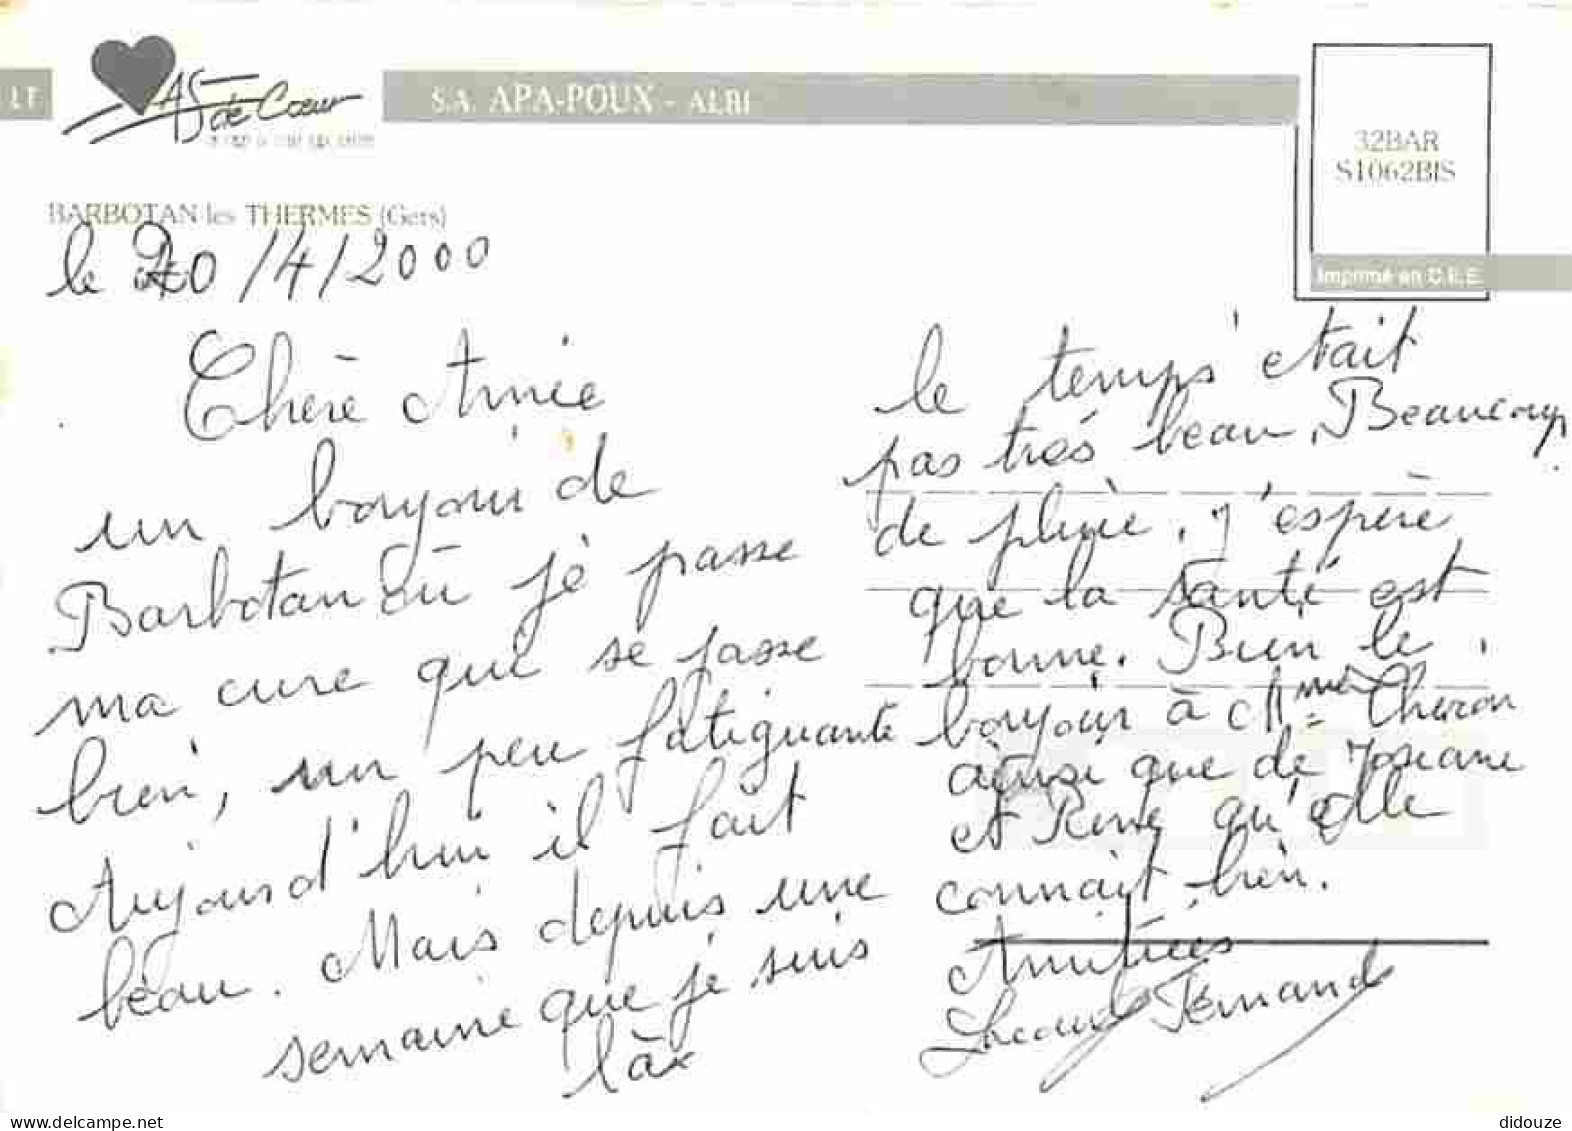 LE
AS de Cœur
S.A. APA-POUX - ALBI
32BAR
S1062BIS
Imprimé en C.E.E.
BARBOTAN les THERMES (Gers)
le 20/4/2000
Chère Amie
un bonjour de
Barbotan où je passe
ma cure que se passe
bien, un peu fatiguante
Aujourd'hui il fait
beau. Mais depuis une
semaine que je suis
là
le temps était
pas très beau. Beaucoup
de pluie. J'espère
que la santé est
bonne. Bien le
bonjour à Mme Theron
ainsi que de Josiane
et René qu'elle
connait bien.
Amitiées
Fernand
didouze